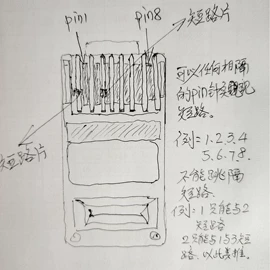 pin1
pin8
短路片
短路片
可以任何相隔
的pin针实现
短路。
例=1.2.3.4
5.6.7.8.
不能跳隔
短路.
例: 1只能与2
短路
2只能与1与3短
路. 以此类推.